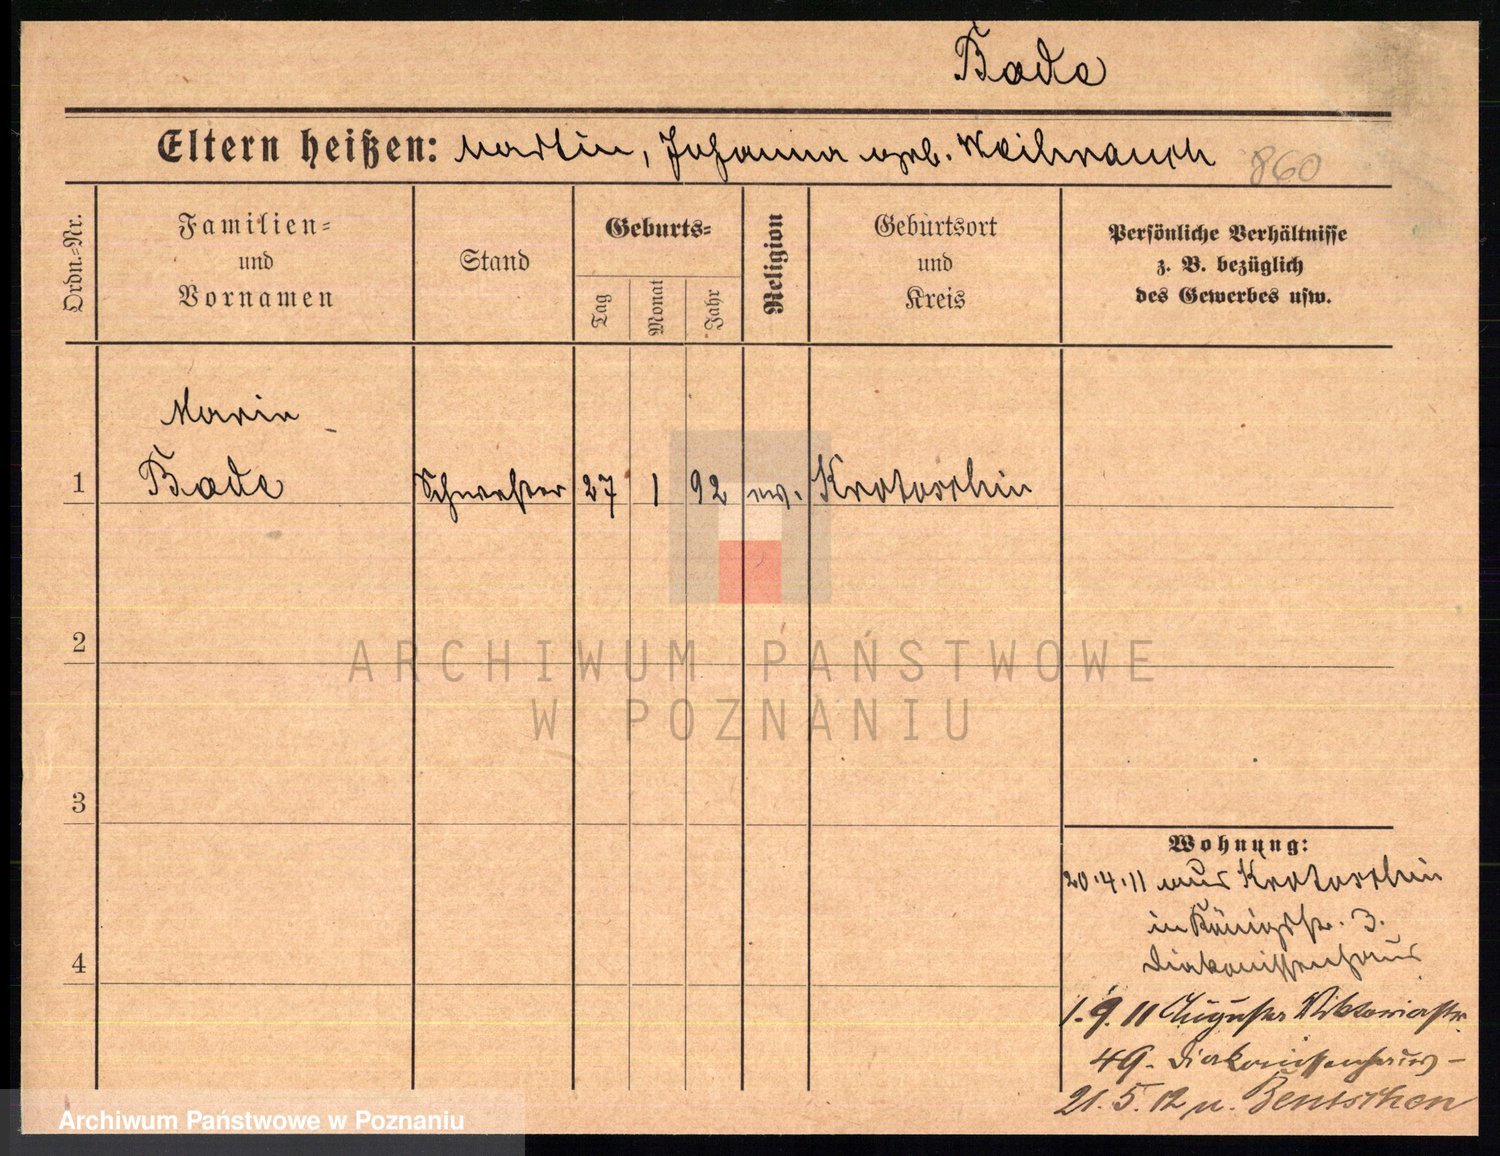 Bade
Eltern heißen: Martin, Johanna geb. Weihrauch 860
Ordn.-Nr.
Familien-
und
Vornamen
Stand
Geburts-
Tag
Monat
Jahr
Religion
Geburtsort
und
Kreis
Persönliche Verhältnisse
z. B. bezüglich
des Gewerbes usw.
Marie
1 Bade Schwester 27 1 92 ev. Krotoschin
2
3
4
Wohnung:
20.4.11 aus Krotoschin
in Königstr. 3.
Diakonissenhaus
1.9.11 Auguste Viktoriastr.
49. Diakonissenhaus
21.5.12 n. Bentschen
ARCHIWUM PAŃSTWOWE
W POZNANIU
Archiwum Państwowe w Poznaniu